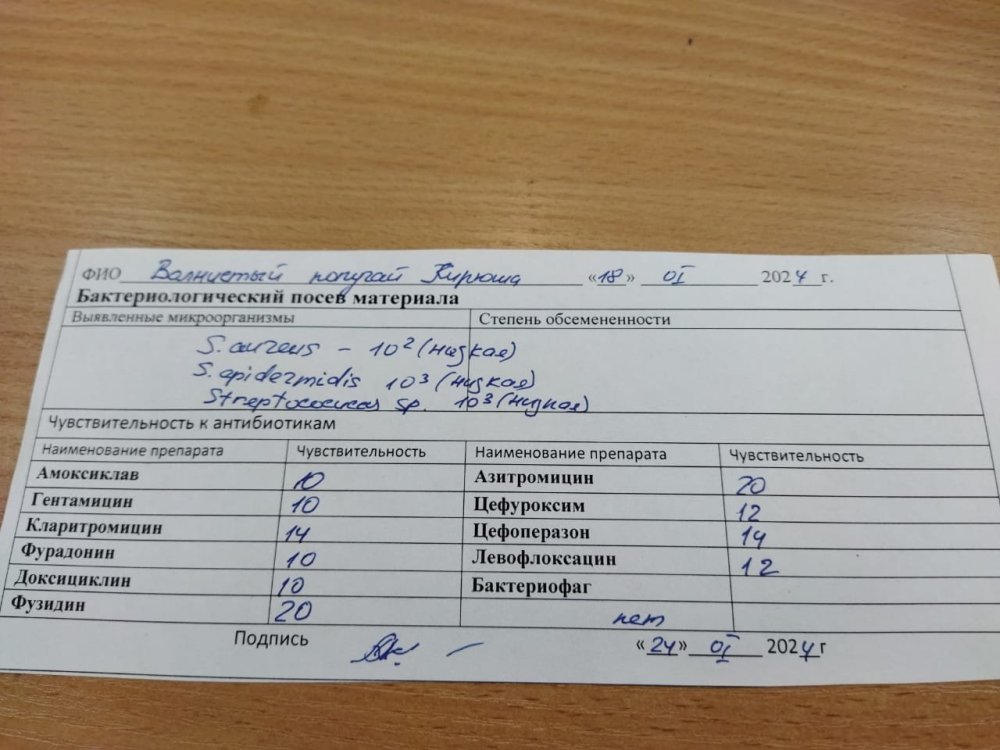 ФИО Валнистый попугай Кирюша «18» 01 2024 г.
Бактериологический посев материала
Выявленные микроорганизмы Степень обсемененности
S. aureus – 10² (низкая)
S. epidermidis 10³ (низкая)
Streptococcus sp. 10³ (низкая)
Чувствительность к антибиотикам
Наименование препарата Чувствительность Наименование препарата Чувствительность
Амоксиклав 10 Азитромицин 20
Гентамицин 10 Цефуроксим 12
Кларитромицин 14 Цефоперазон 14
Фурадонин 10 Левофлоксацин 12
Доксициклин 10 Бактериофаг
Фузидин 20 нет
Подпись «24» 01 2024 г